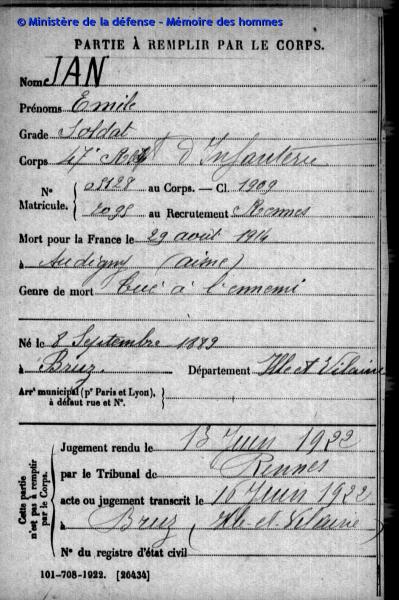 © Ministère de la défense - Mémoire des hommes
PARTIE À REMPLIR PAR LE CORPS.
Nom JAN
Prénoms Emile
Grade Soldat
Corps 47e Régt d'Infanterie
N° Matricule. { 05128 au Corps. — Cl. 1909
1095 au Recrutement Rennes
Mort pour la France le 29 août 1914
à Audigny (aisne)
Genre de mort tué à l'ennemi
Né le 8 Septembre 1889
à Bruz. Département Ille et Vilaine
Arrt municipal (pr Paris et Lyon), à défaut rue et N°. }
Cette partie n'est pas à remplir par le Corps.
Jugement rendu le 13 Juin 1922
par le Tribunal de Rennes
acte ou jugement transcrit le 16 Juin 1922
à Bruz (Ille-et-Vilaine)
N° du registre d'état civil
101-708-1922. [26434]